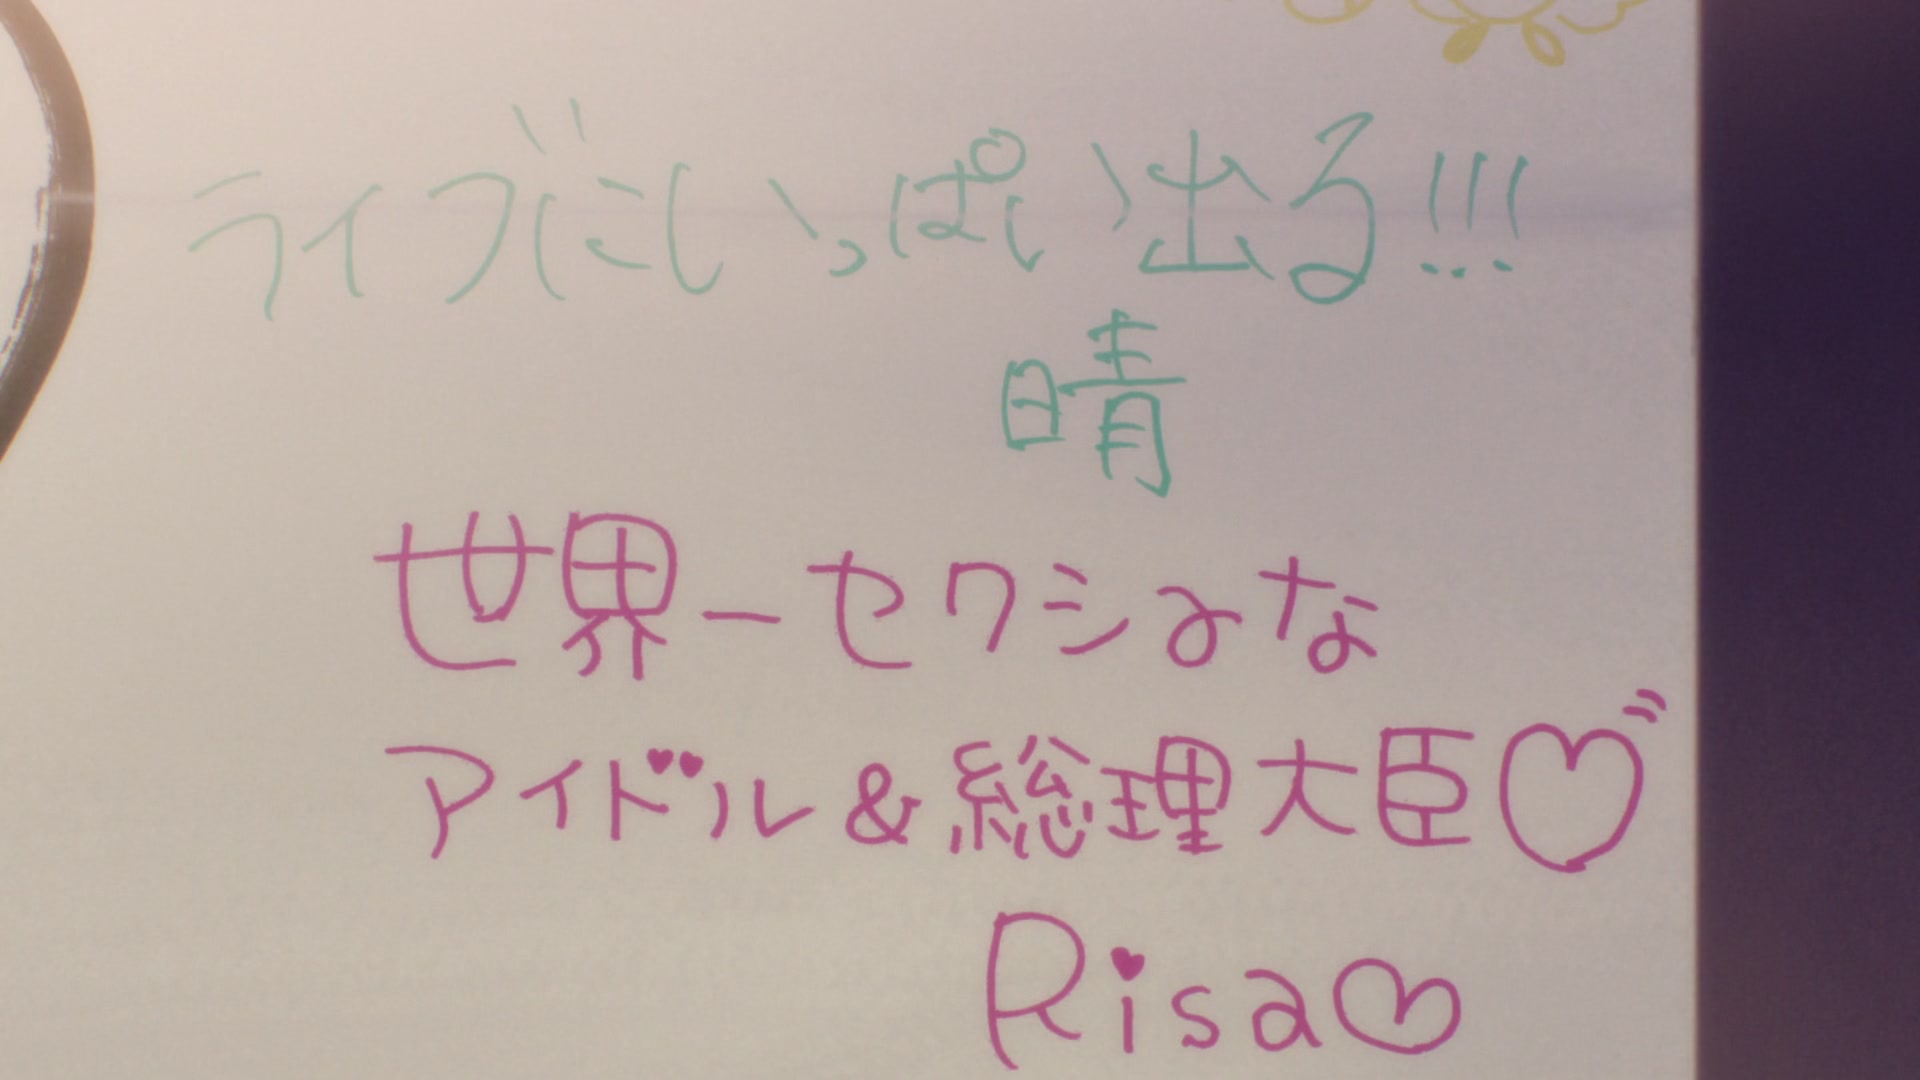 ライブにいっぱい出る!!!
晴
世界一セクシーな
アイドル&総理大臣♡
Risa♡